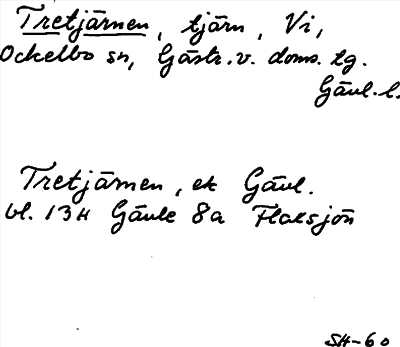 Tretjärnen, tjärn, Vi,
Ockelbo sn, Gästr.v. doms. tg.
Gävl. l.
Tretjärnen, ek Gävl.
bl. 13H Gävle 8a Flaksjön
SH-60